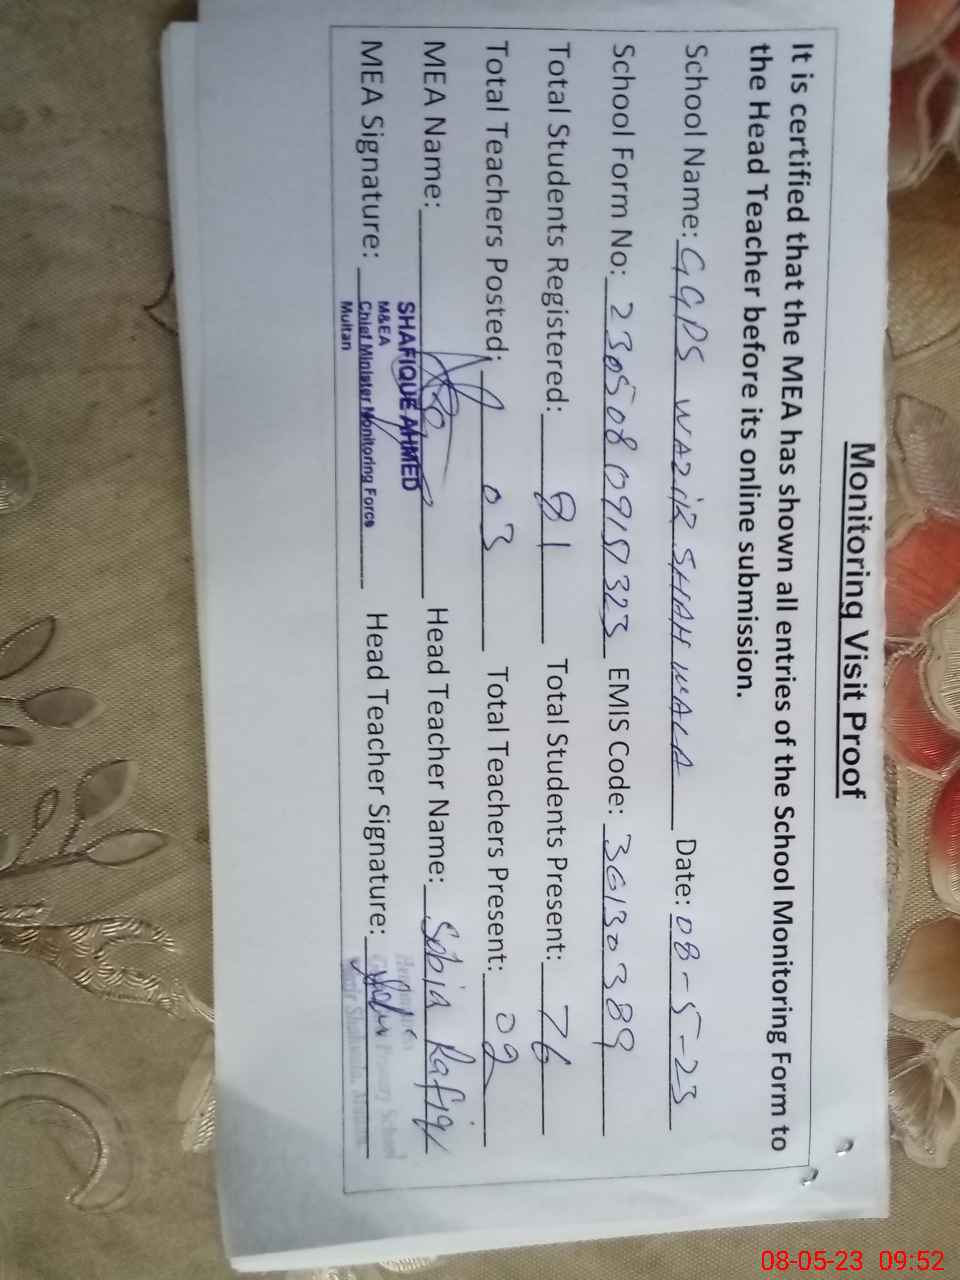 Monitoring Visit Proof
It is certified that the MEA has shown all entries of the School Monitoring Form to
the Head Teacher before its online submission.
School Name: GGPS WAZIR SHAH WALA Date: 08-5-23
School Form No: EMIS Code: 36130389
Total Students Registered: 81 Total Students Present: 76
Total Teachers Posted: 03 Total Teachers Present: 02
MEA Name: Head Teacher Name: Sobia Rafiq
SHAFIQUE AHMED
MEA Signature: Head Teacher Signature:
M&EA
Chief Minister Monitoring Force
Multan
Primary School
08-05-23 09:52